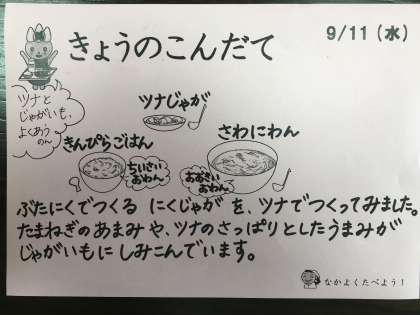 きょうのこんだて
9/11（水）
ツナと
じゃがいも、
よくあう
のん
ツナじゃが
きんぴらごはん
ちいさい
おわん
さわにわん
おおきい
おわん
ぶたにくでつくる にくじゃが を、ツナでつくってみました。
たまねぎのあまみ や、ツナのさっぱりとしたうまみが
じゃがいもに しみこんでいます。
なかよくたべよう！